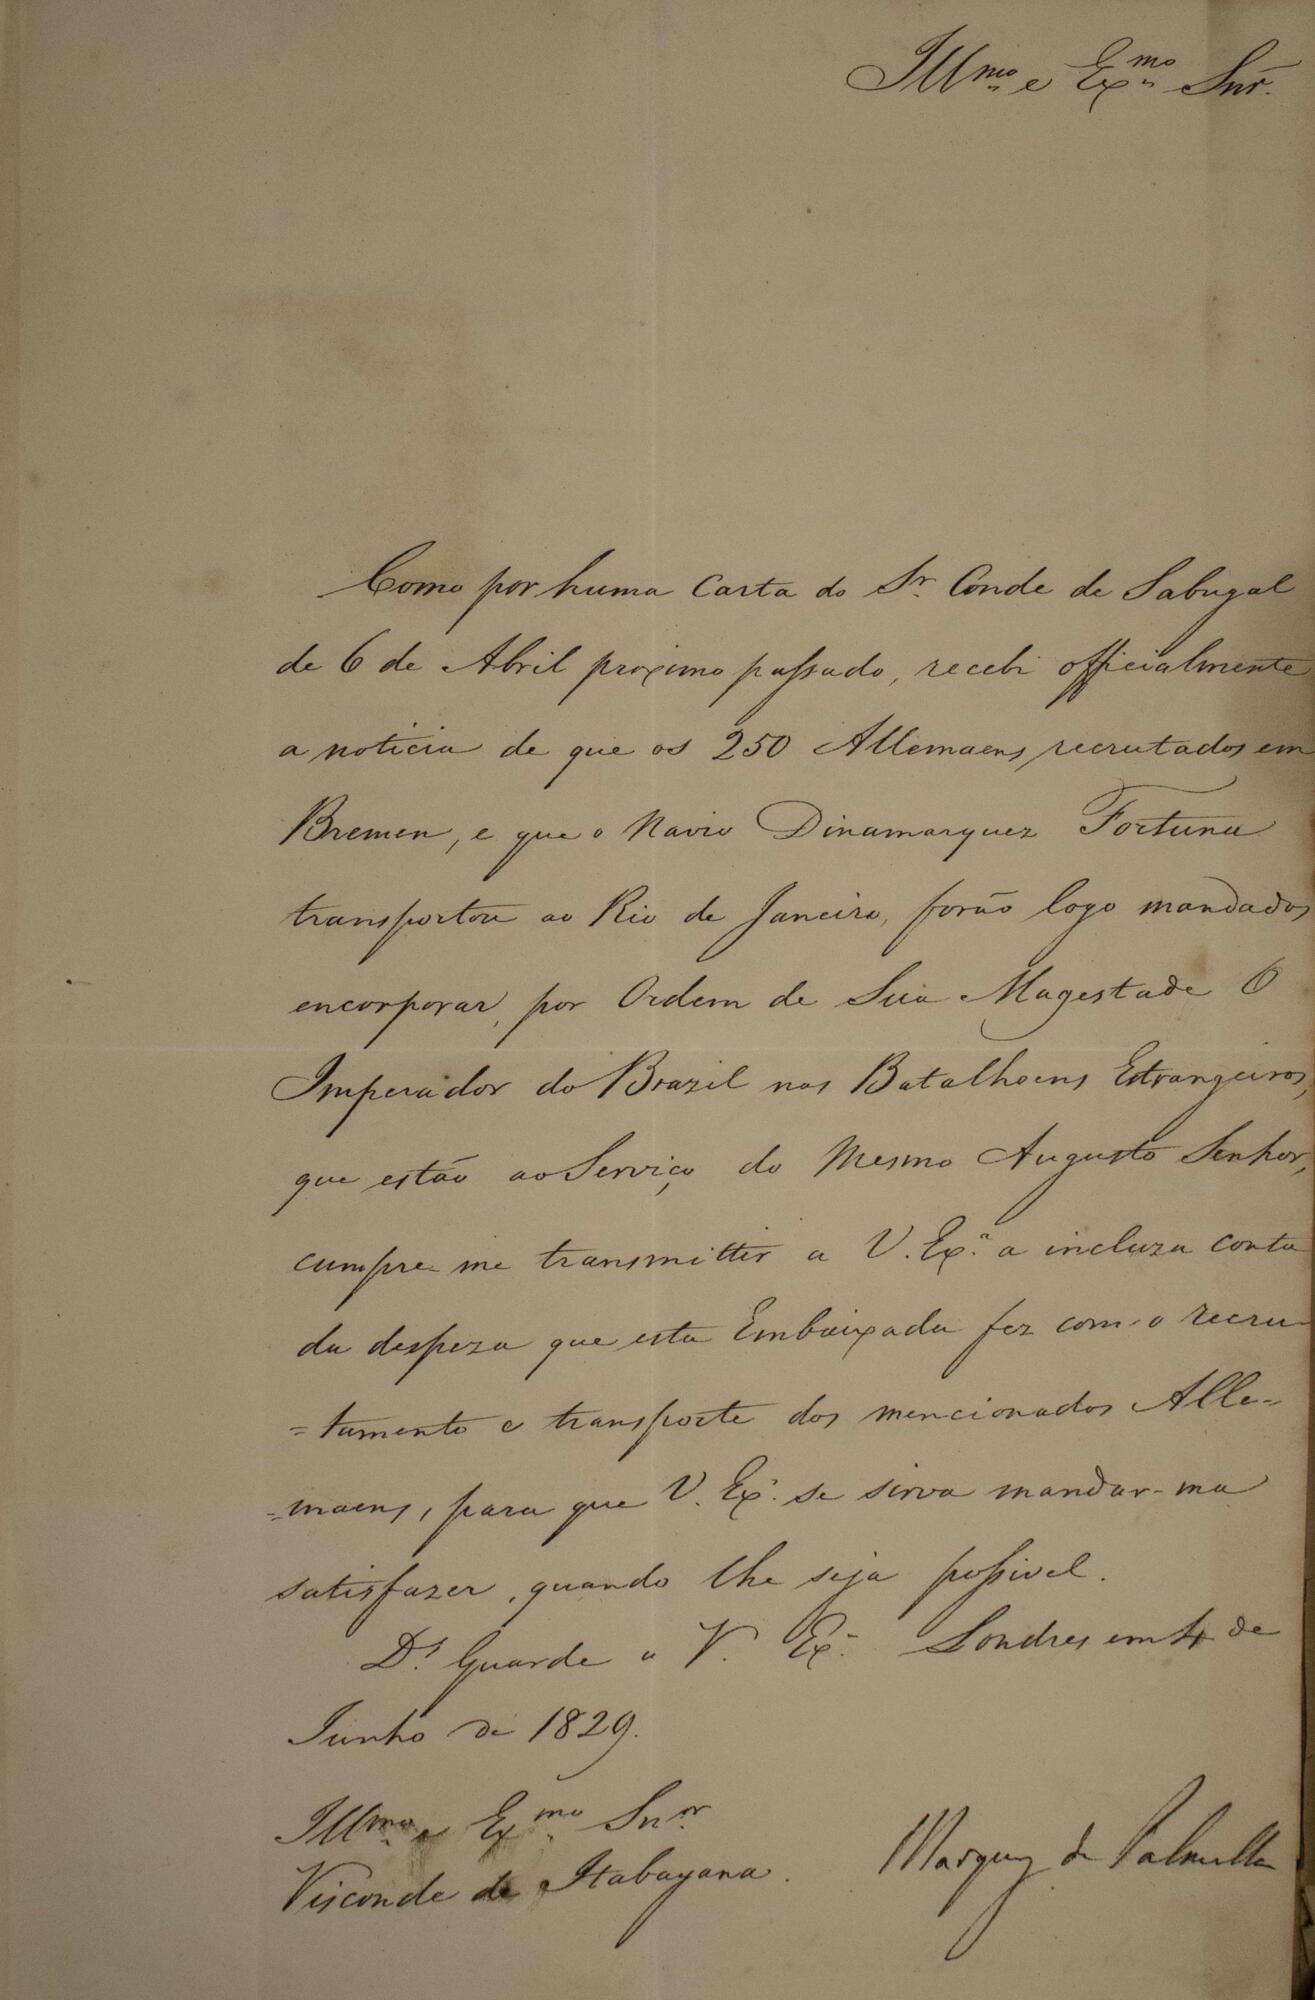 Illmo e Exmo Snr.
Como por huma Carta do Sr. Conde de Sabugal
de 6 de Abril proximo passado, recebi officialmente
a noticia de que os 250 Allemaens recrutados em
Bremen, e que o Navio Dinamarquez Fortuna
transportou ao Rio de Janeiro, forão logo mandados
encorporar, por Ordem de Sua Magestade O
Imperador do Brazil nos Batalhoens Estrangeiros,
que estão ao Serviço do Mesmo Augusto Senhor,
cumpre-me transmittir a V. Exa. a incluza conta
da despeza que esta Embaixada fez com o recru-
=tamento e transporte dos mencionados Alle=
=maens, para que V. Exa. se sirva mandar-ma
satisfazer, quando lhe seja possivel.
Ds. Guarde a V. Exa. Londres em 4 de
Junho de 1829.
Illmo e Exmo Snor.
Visconde de Itabayana.
Marquez de Palmella